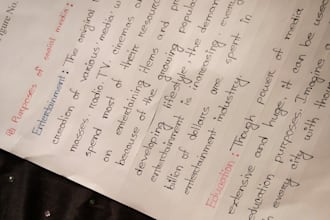 igure No.
Purposes of social media:
Entertainment: The original
creation of various media w
masses. radio, TV, cinemas a
spend most of their resour
on entertaining items and pr
because of the growing popula
developing lifestyle the deman
entertainment is increasing; every
billion of dollars are spent in
entertainment industry.
Education: Though power of media
extensive and huge, it can
education purposes. Imagine
every city with th